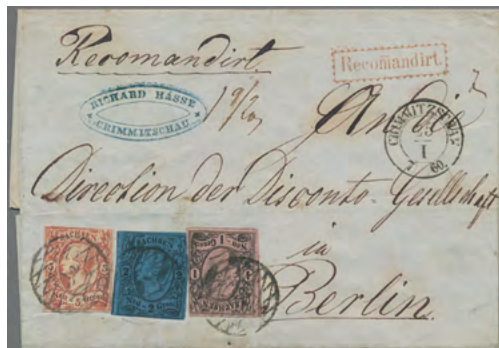 Recomandirt
Recomandirt.
RICHARD HASSE
CRIMMITSCHAU
An die
CRIMMITZSCHAU
I
60.
Direction der Disconto-Gesellschaft
in
Berlin
SACHSEN
SACHSEN
Neu-Grosch. 1
SACHSEN